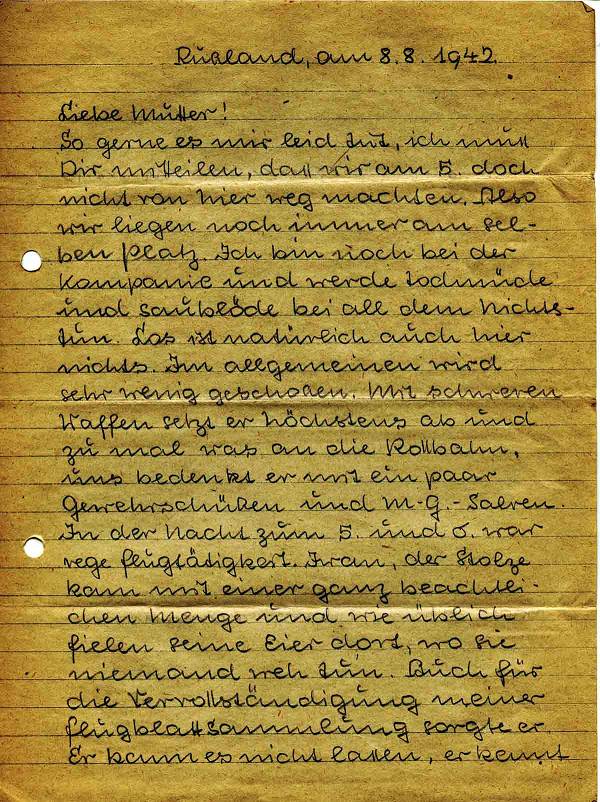 Rußland, am 8.8. 1942.
Liebe Mutter!
So gerne es mir leid tut, ich muß
Dir mitteilen, daß wir am 5. doch
nicht von hier weg machten. Also
wir liegen noch immer am sel-
ben Platz. Ich bin noch bei der
Kompanie und werde todmüde
und saublöde bei all dem Nichts-
tun. Los ist natürlich auch hier
nichts. Im allgemeinen wird
sehr wenig geschoßen. Mit schweren
Waffen setzt er höchstens ab und
zu mal was an die Rollbahn,
uns bedenkt er mit ein paar
Gewehrschüßen und M-G.-Salven.
In der Nacht zum 5. und 6. war
rege Flugtätigkeit. Iwan, der Stolze
kam mit einer ganz beachtli-
chen Menge und wie üblich
fielen seine Eier dort, wo sie
niemand weh tun. Auch für
die Vervollständigung meiner
Flugblattsammlung sorgte er.
Er kann es nicht laßen, er kennt